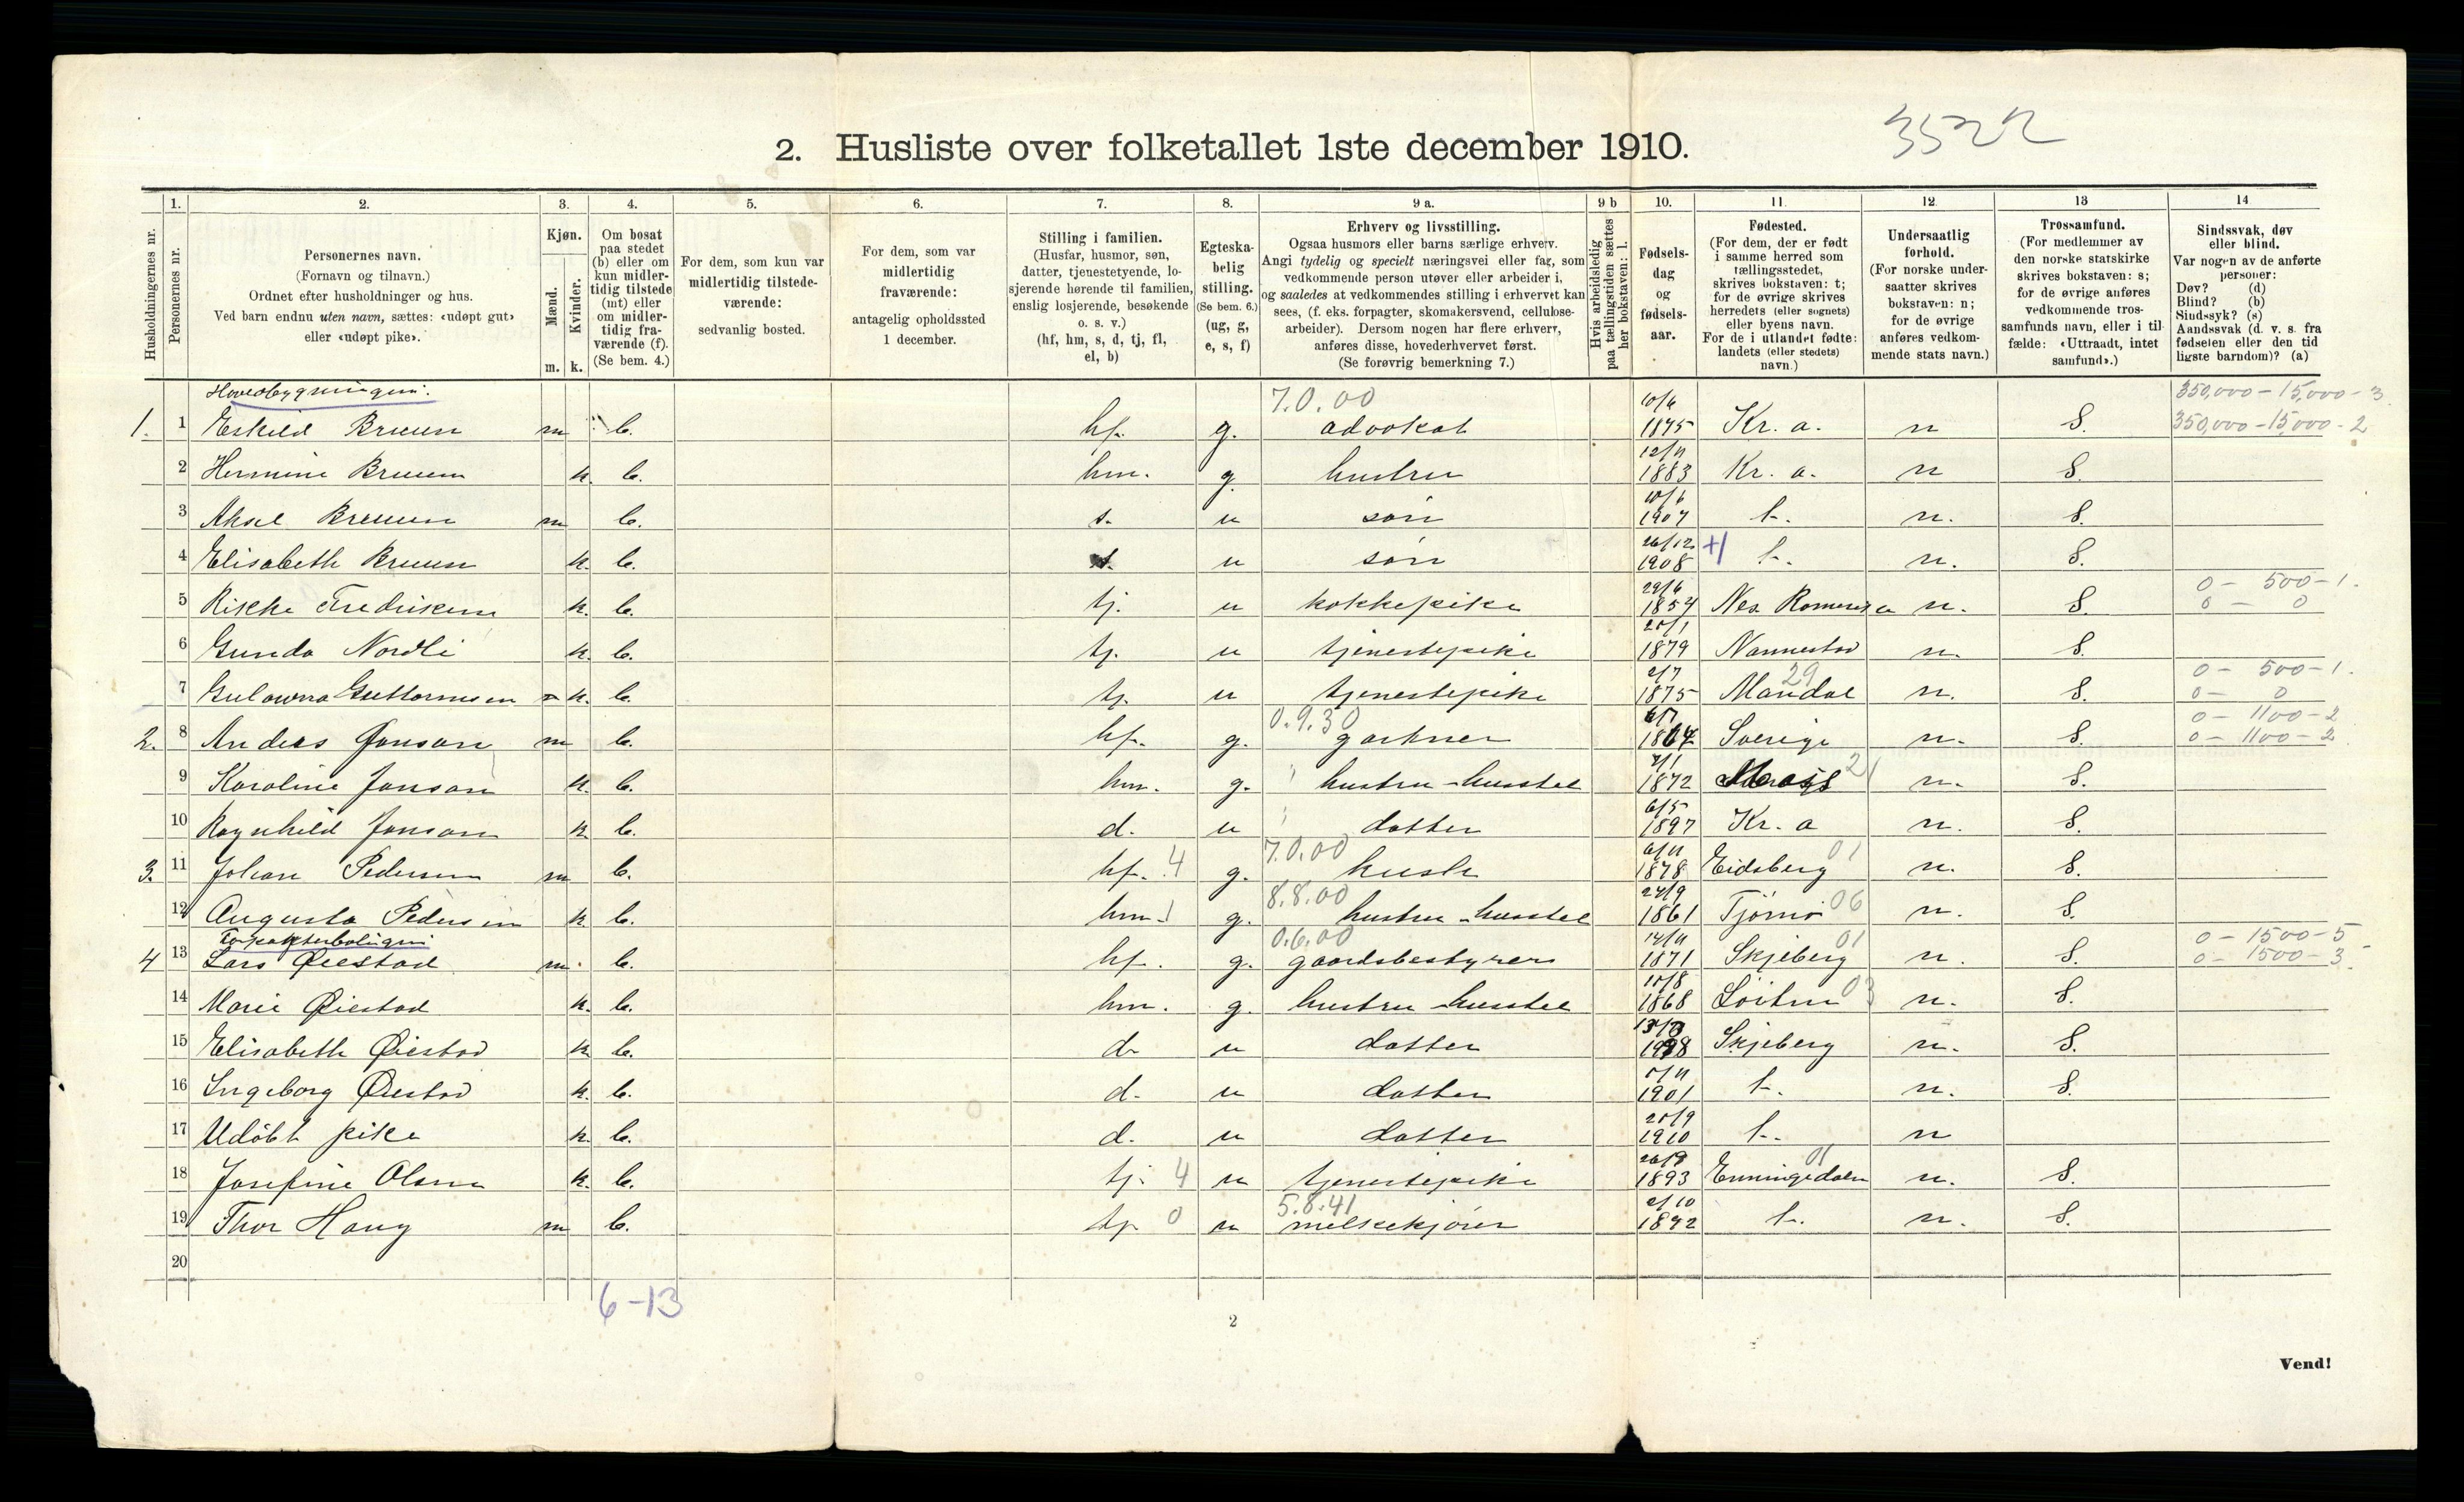 3522
2. Husliste over folketallet 1ste december 1910.
Husholdningernes nr.
1. Personernes nr.
2. Personernes navn.
(Fornavn og tilnavn.)
Ordnet efter husholdninger og hus.
Ved barn endnu uten navn, sættes: «udøpt gut»
eller «udøpt pike».
3. Kjøn.
Mænd. Kvinder.
m. k.
4. Om bosat
paa stedet
(b) eller om
kun midler-
tidig tilstede
(mt) eller
om midler-
tidig fra-
værende (f).
(Se bem. 4.)
5. For dem, som kun var
midlertidig tilstede-
værende:
sedvanlig bosted.
6. For dem, som var
midlertidig
fraværende:
antagelig opholdssted
1 december.
7. Stilling i familien.
(Husfar, husmor, søn,
datter, tjenestetyende, lo-
sjerende hørende til familien,
enslig losjerende, besøkende
o. s. v.)
(hf, hm, s, d, tj, fl,
el, b)
8. Egteska-
belig
stilling.
(Se bem. 6.)
(ug, g,
e, s, f)
9 a. Erhverv og livsstilling.
Ogsaa husmors eller barns særlige erhverv.
Angi tydelig og specielt næringsvei eller fag, som
vedkommende person utøver eller arbeider i,
og saaledes at vedkommendes stilling i erhvervet kan
sees, (f. eks. forpagter, skomakersvend, cellulose-
arbeider). Dersom nogen har flere erhverv,
anføres disse, hovederhvervet først.
(Se forøvrig bemerkning 7.)
9 b Hvis arbeidsledig
paa tællingstiden sættes
her bokstaven: l.
10. Fødsels-
dag
og
fødsels-
aar.
11. Fødested.
(For dem, der er født
i samme herred som
tællingsstedet,
skrives bokstaven: t;
for de øvrige skrives
herredets (eller sognets)
eller byens navn.
For de i utlandet fødte:
landets (eller stedets)
navn.)
12. Undersaatlig
forhold.
(For norske under-
saatter skrives
bokstaven: n;
for de øvrige
anføres vedkom-
mende stats navn.)
13 Trossamfund.
(For medlemmer av
den norske statskirke
skrives bokstaven: s;
for de øvrige anføres
vedkommende tros-
samfunds navn, eller i til-
fælde: «Uttraadt, intet
samfund».)
14 Sindssvak, døv
eller blind.
Var nogen av de anførte
personer:
Døv? (d)
Blind? (b)
Sindssyk? (s)
Aandssvak (d. v. s. fra
fødselen eller den tid
ligste barndom)? (a)
Hovedbygningen. 7.0.00 10/6 350,000-15,000-3
1. 1 Eskild Bruun m b. hf. g. advokat 1875 Kr. a. n S. 350,000-15,000-2
2 Hermine Bruun k. b. hm. g. hustru 12/11 1883 Kr. a. n S.
3 Aksel Bruun m b. s. u søn 10/6 1907 t. n. S.
4 Elisabeth Bruun k. b. s. u søn 26/12 1908 t. n. S.
5 Rikke Fredriksen k. b. tj. u kokkepike 29/6 1854 Nes Romerike n. S. 0-500-1. 0-0
6 Gunda Nordli k. b. tj. u tjenestepike 1879 Nannestad n. S.
7 Guttormsen k. b. tj. u tjenestepike 2/7 1875 Mandal 29 n. S. 0-500-1. 0-0
2. 8 Anders Jonson m b. hf. g. 0.9.30 gartner Sverige n. S. 0-1100-2 0-1100-2
9 Karoline Jonson k. b. hm. g. hustru-husstel 1872 21 n. S.
10 Ragnhild Jonson k. b. d. u datter 6/5 1897 Kr. a n. S.
3. 11 Johan Pedersen m b. hf. 4 g. 7.0.00 kusk 6/11 1878 Eidsberg 01 n. S.
12 Augusta Pedersen k. b. hm. 1 g. 8.8.00 hustru-husstel 24/9 1861 Tjømø 06 n. S.
Forpakterboligen
4 13 Lars Øiestad m. b. hf. g. 0.6.00 gaardsbestyrer 14/11 1871 Skjeberg 01 n. S. 0-1500-5 0-1500-3
14 Marie Øiestad k. b. hm. g. hustru-husstel 10/8 1868 Løiten 03 n. S.
15 Elisabeth Øiestad k. b. d. u datter Skjeberg n. S.
16 Ingeborg Øiestad k. b. d. u datter 1901 t. n. S.
17 Udøbt pike k. b. d. u datter 1910 t. n
18 Josefine Olsen k. b. tj. 4 u tjenestepike 1893 Enningedalen 01 n. S.
19 Thor Haug m b. tj. 0 u 5.8.41 melkekjører 2/10 1892 t. n. S.
20
6-13
2
Vend!